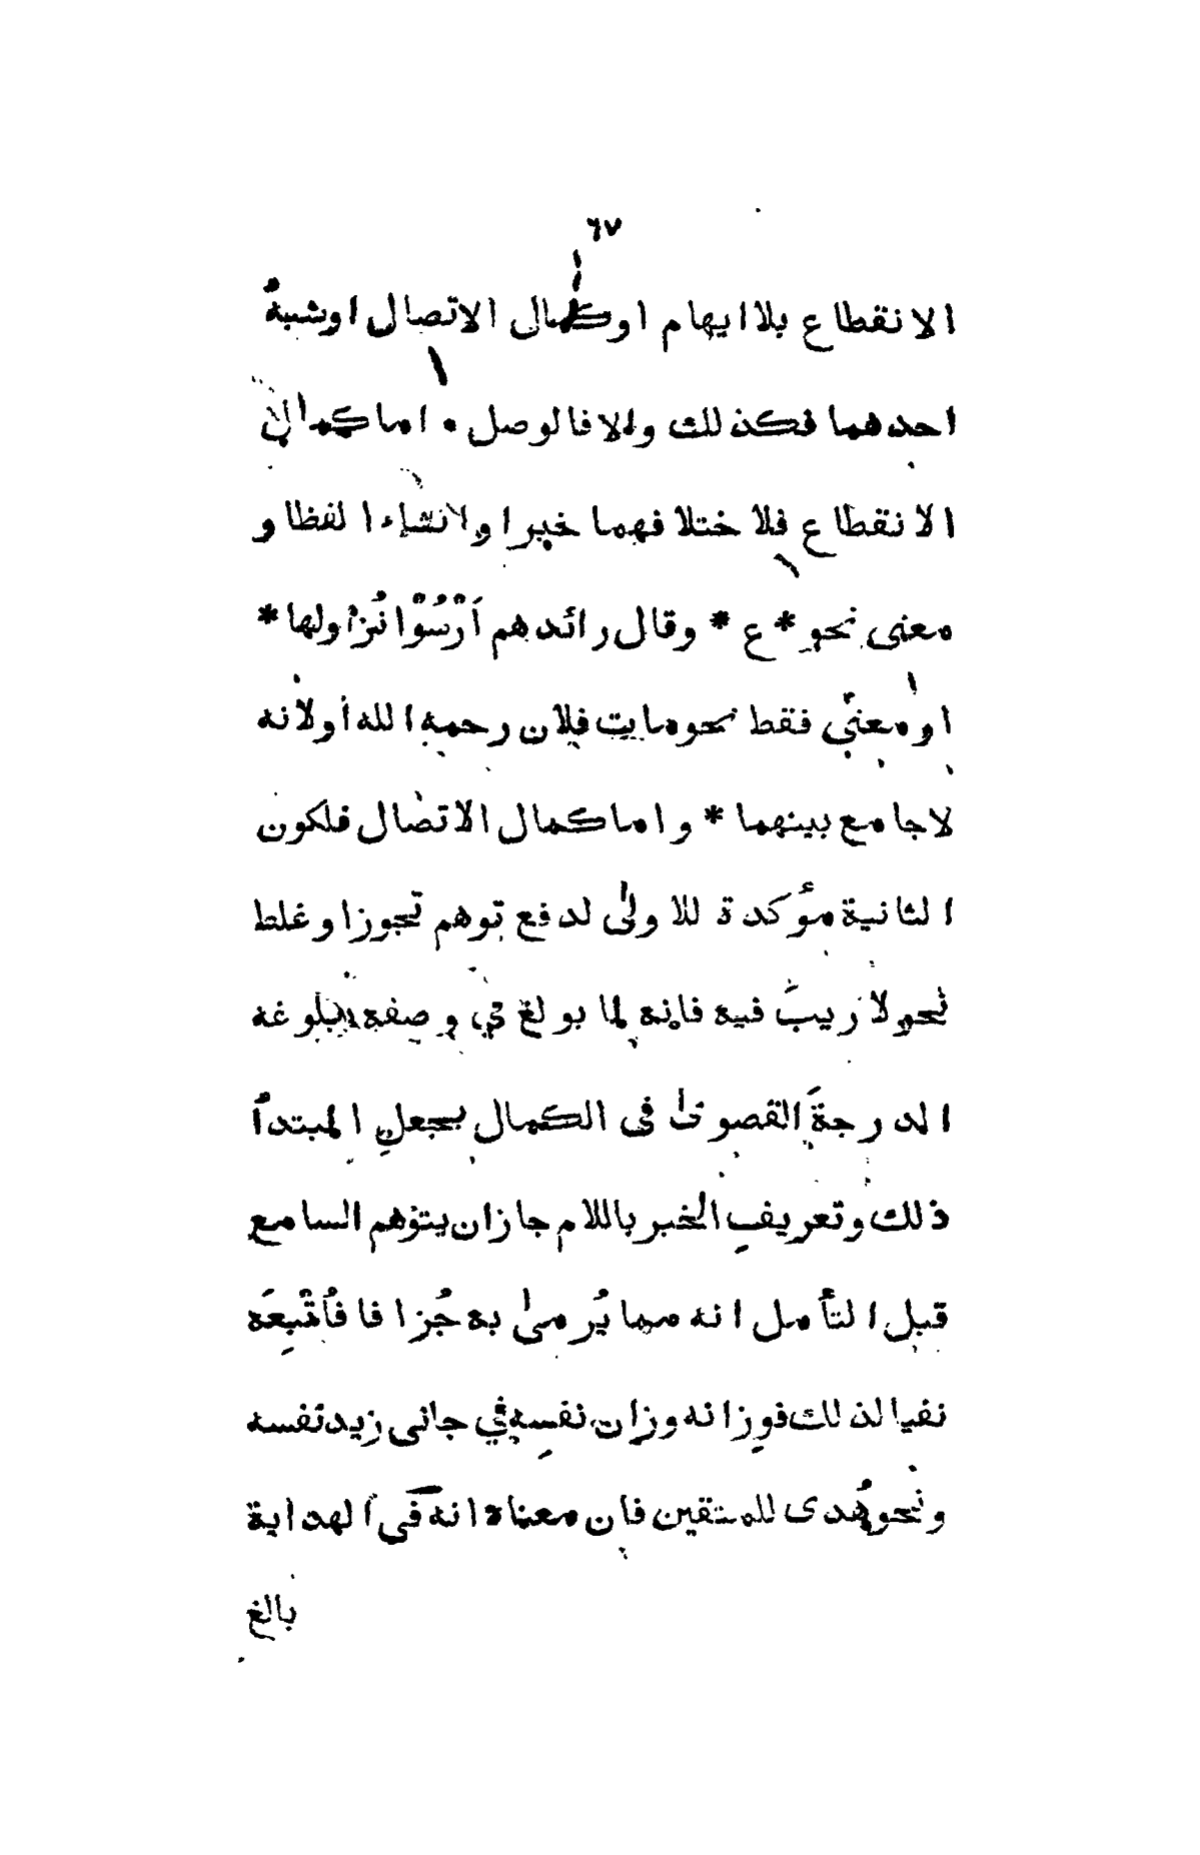 ٦٧
الانقطاع بلا ايهام او كمال الاتصال او شبهُ
احدهما فكذلك والا فالوصل ٠ اما كمال
الانقطاع فلاختلافهما خبرا وانشاءا لفظا و
معنى نحو * ع * وقال رائدهم اَرْسُوْا نُزاولها *
او معنًى فقط نحو مات فلان رحمه الله أو لانه
لا جامع بينهما * واما كمال الاتصال فلكون
الثانية مؤكدة للاولى لدفع توهم تجوز او غلط
نحو لا ريبَ فيه فانه لما بولغ في وصفه ببلوغه
الدرجةَ القصوىٰ فى الكمال بجعلِ المبتدأ
ذلك وتعريفِ الخبر باللام جاز ان يتوهم السامع
قبل التأمل انه مما يُرمىٰ به جُزافا فاُتْبِعَه
نفيا لذلك فوزانه وزان نفسِه في جانى زيد نفسه
ونحو هُدى للمتقين فان معناه انه فى الهداية
بالغ